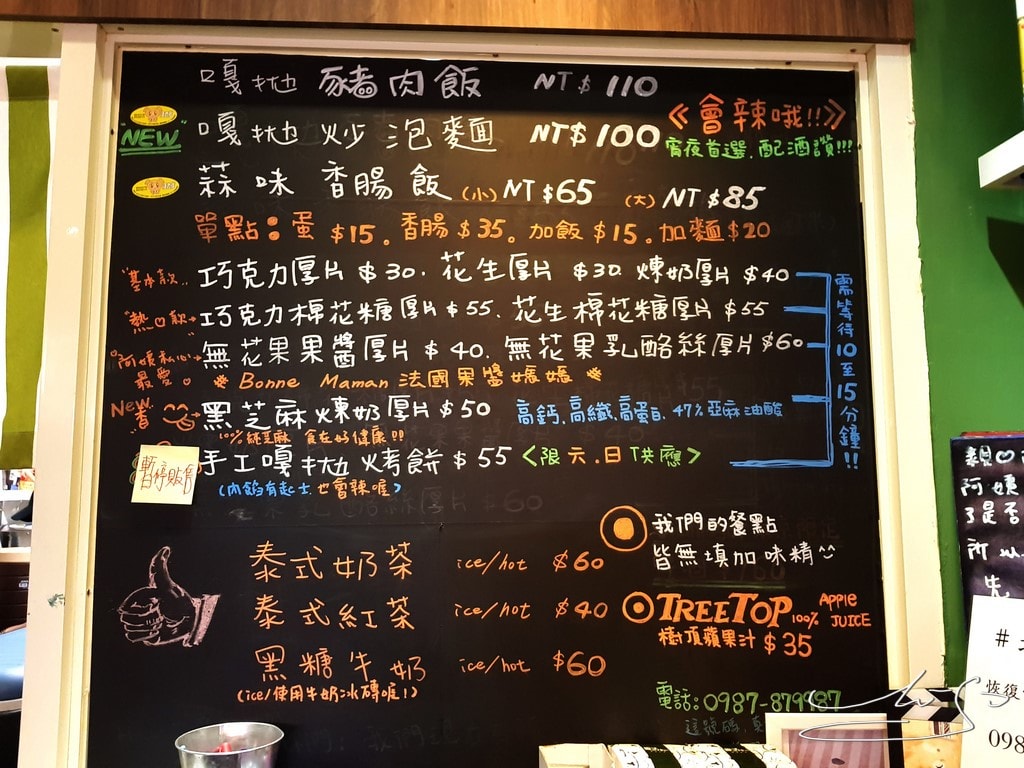 嘎抛豬肉飯 NT$110
"NEW" 嘎抛炒泡麵 NT$100
《會辣哦!!》
宵夜首選.配酒讚!!!
蒜味香腸飯(小)NT$65 (大)NT$85
單點:蛋$15。香腸$35。加飯$15。加麵$20
"基本款" 巧克力厚片$30. 花生厚片$30. 煉奶厚片$40
"熱♡款"→巧克力棉花糖厚片$55、花生棉花糖厚片$55
"阿姨私心→最愛♡ 無花果果醬厚片$40、無花果乳酪絲厚片$60
Bonne Maman 法國果醬媽媽
New "香" →黑芝麻煉奶厚片$50 高鈣、高纖、高蛋白、47%亞麻油酸
100%純芝麻 食在好健康!!
手工嘎抛烤餅$55 <限六.日供應>
(內餡有起士,也會辣喔)
暫停販售
需等待10至15分鐘!!
我們的餐點
皆無填加味精
泰式奶茶 ice/hot $60
泰式紅茶 ice/hot $40
黑糖牛奶 ice/hot $60
(ice/使用牛奶冰磚喔!)
TREETOP 100% APPLE JUICE
樹頂蘋果汁$35
電話:0987-879987
這號碼
親
阿姨
了是否
所以
先
#
恢復
098